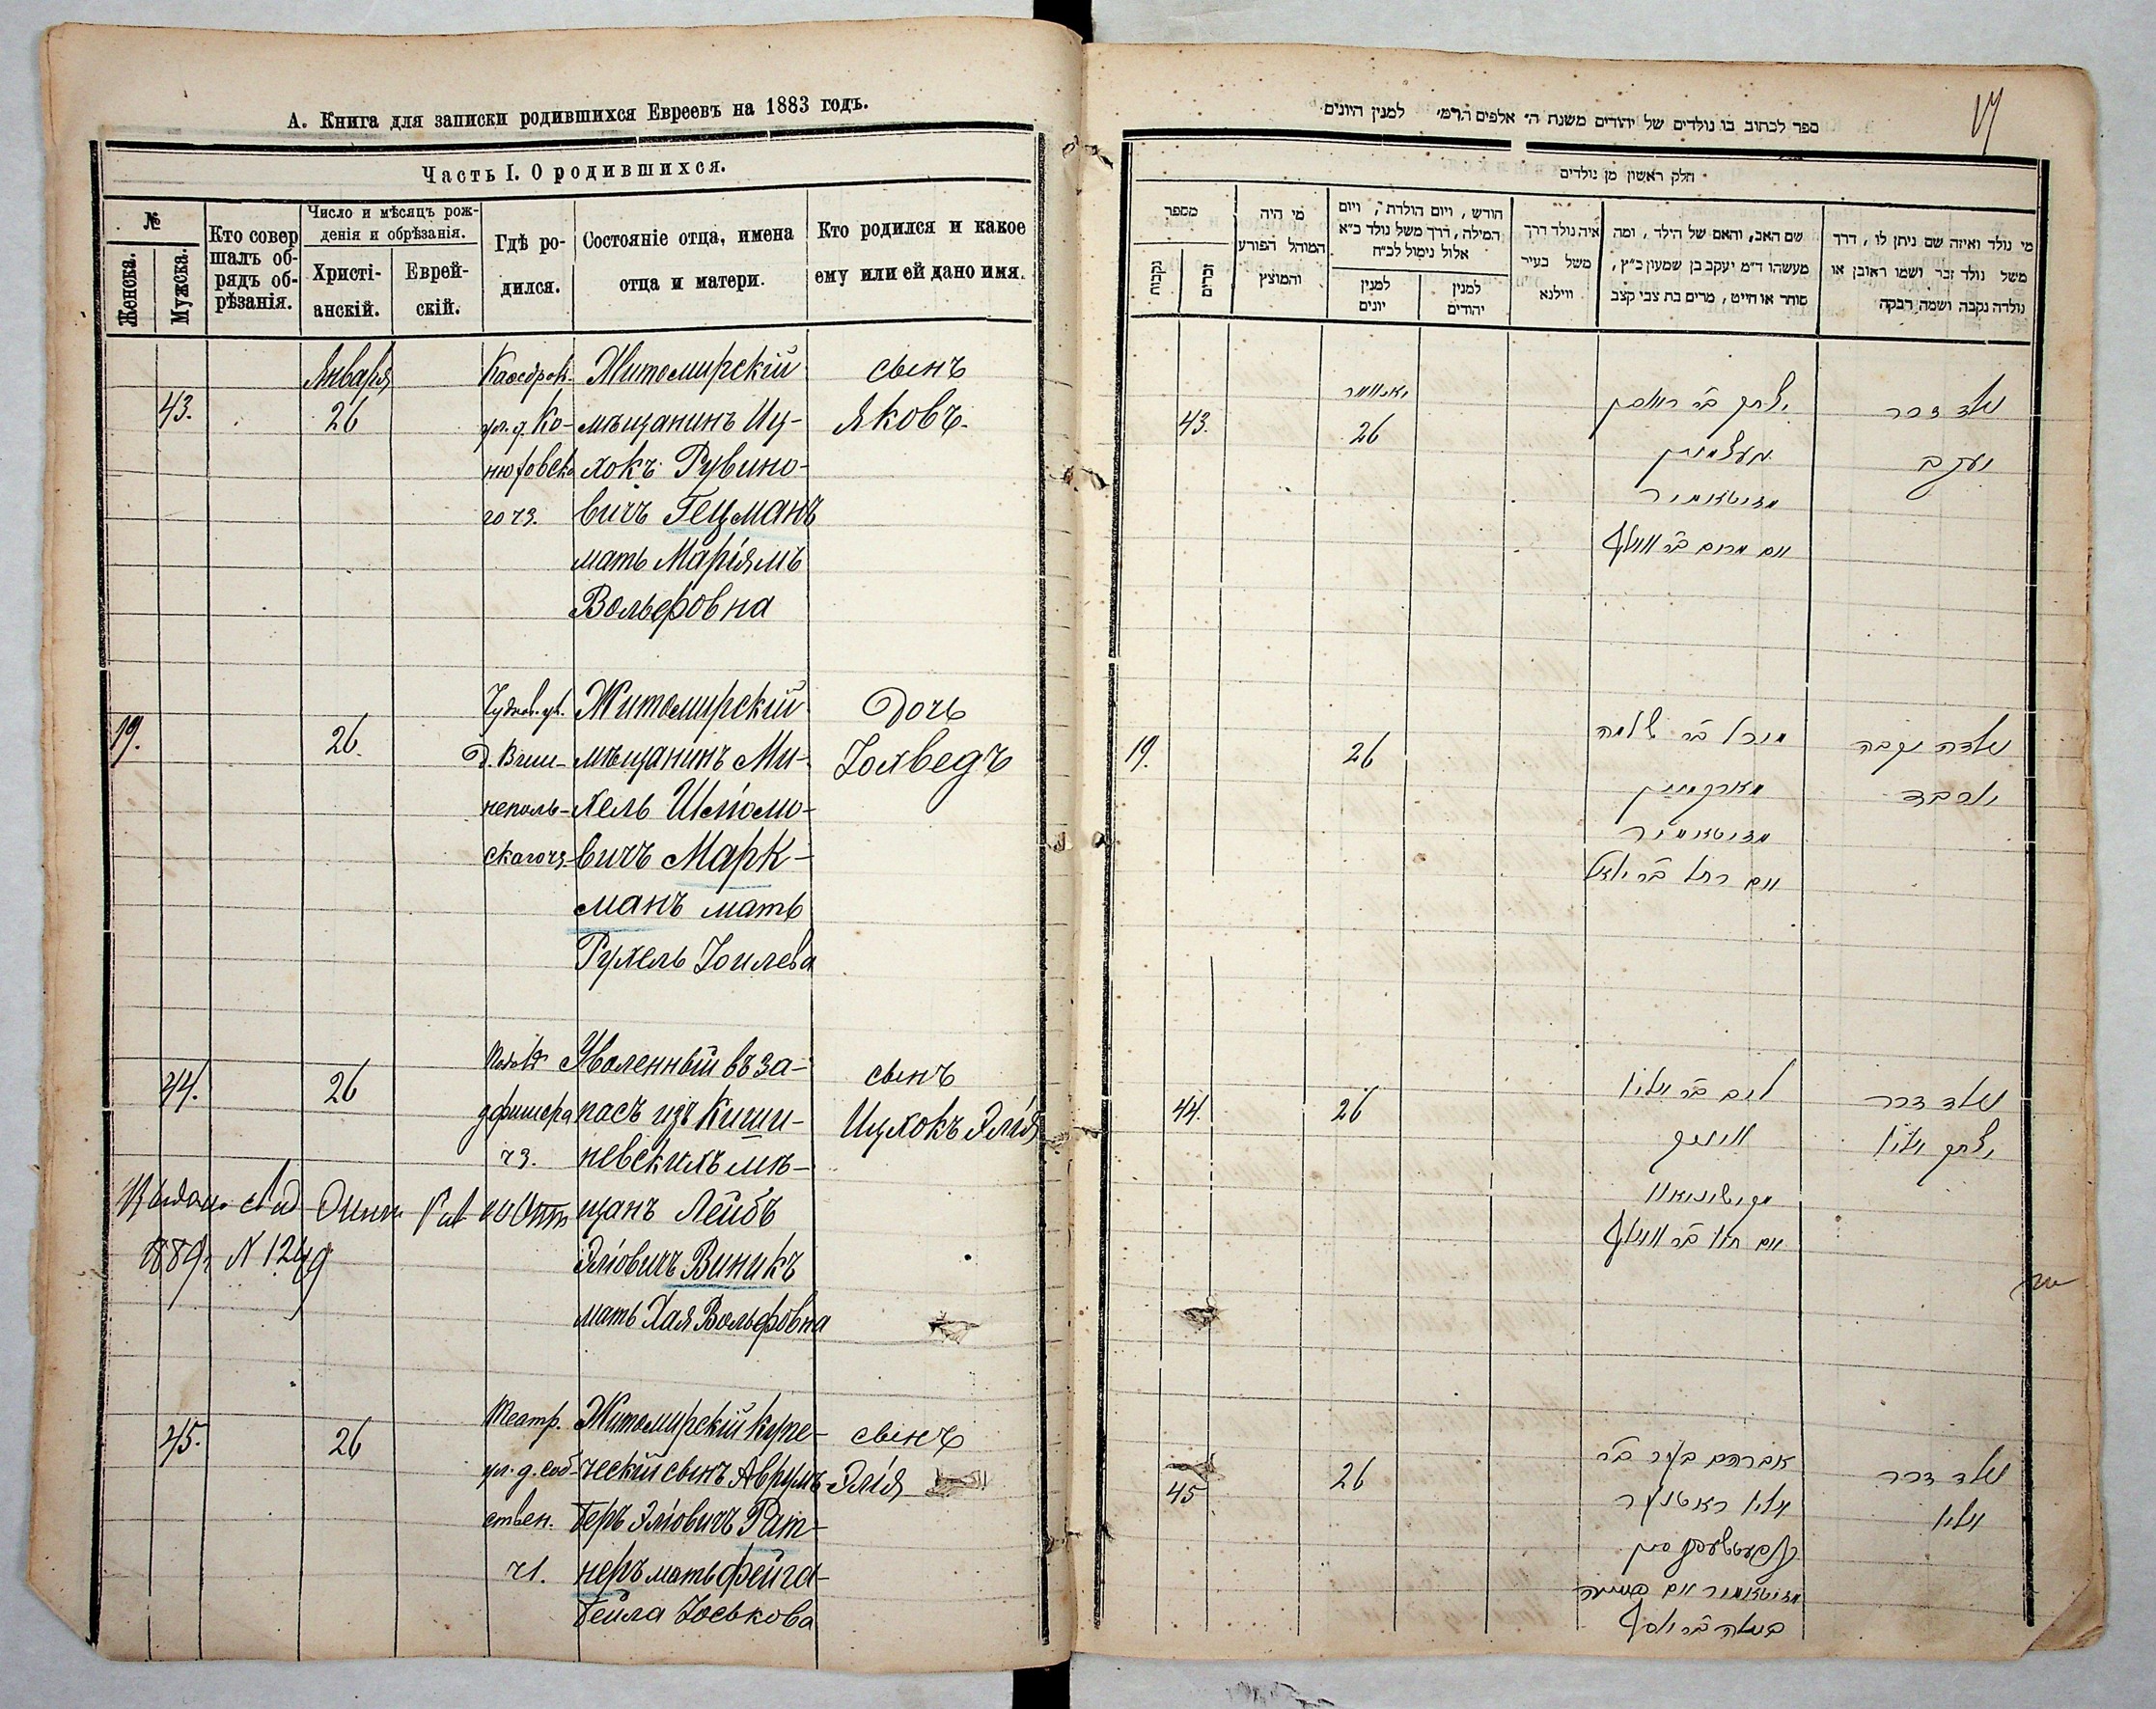 А. Книга для записки родившихся Евреевъ на 1883 годъ.
Часть I. О родившихся.
№
Женска.
Мужска.
Кто совершалъ обрядъ обрѣзанія.
Число и мѣсяцъ рожденія и обрѣзанія.
Христіанскій.
Еврейскій.
Гдѣ родился.
Состояніе отца, имена отца и матери.
Кто родился и какое ему или ей дано имя.
Января
43.
26
ул. д. Ко-
го ч3.
Житомирскій
мѣщанинъ Иц-
хокъ Рувино-
вичъ Гецманъ
мать Маріямъ
Вольфовна
сынъ
Яковъ
19.
26.
Чуднов. ул.
Д. Выш-
неполь-
скаго ч3.
Житомирскій
мѣщанинъ Ми-
хель Шліомо-
вичъ Марк-
манъ мать
Рухель Іоилева
Дочь
Іохведъ
44.
26
ч3.
Уволенный въ за-
пасъ изъ Киши-
невскихъ мѣ-
щанъ Лейбъ
Эліовичъ Виникъ
мать Хая Вольфовна
сынъ
Ицхокъ Элія
1889 N 1249
45.
26
Театр.
ул. д. соб-
ствен.
ч1.
Житомирскій купе-
ческій сынъ Аврумъ
Беръ Эліовичъ Рат-
неръ мать Фейга-
Бейла Іоськова
сынъ
Элія
17
ספר לכתוב בו נולדים של יהודים משנת ה' אלפים הר"מ למנין היונים
חלק ראשון מן נולדים
מספר
נקבות
זכרים
מי היה המוהל הפורע והמוצץ
חודש, ויום הולדת, ויום המילה, דרך משל נולד כ"א אלול נימול לכ"ח
למנין יונים
למנין יהודים
איה נולד דרך משל בעיר ווילנא
שם האב, והאם של הילד, ומה מעשהו ד"מ יעקב בן שמעון כ"ץ, סוחר או חייט, מרים בת צבי קצב
מי נולד ואיזה שם ניתן לו, דרך משל נולד זכר ושמו ראובן או נולדה נקבה ושמה רבקה
43.
יאנואר
26
יצחק ב"ר ראובן
מזיטאמיר
ואם מרים ב"ר וואלף
נולד זכר
יעקב
19.
26
מיכל ב"ר שלמה
מארקמאן
מזיטאמיר
ואם רחל ב"ר יואל
נולדה נקבה
יוכבד
44.
26
ליב ב"ר אליו
וויניק
מקישינוב
ואם חיה ב"ר וואלף
נולד זכר
יצחק אליו
45
26
אברהם בער ב"ר
אליו ראטנער
מזיטאמיר ואם פייגא
ביילה ב"ר יוסף
נולד זכר
אליו